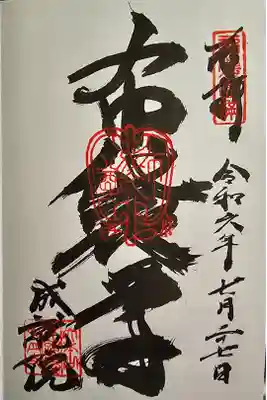 奉拝
令和六年七月二十七日
布袋尊
成就院